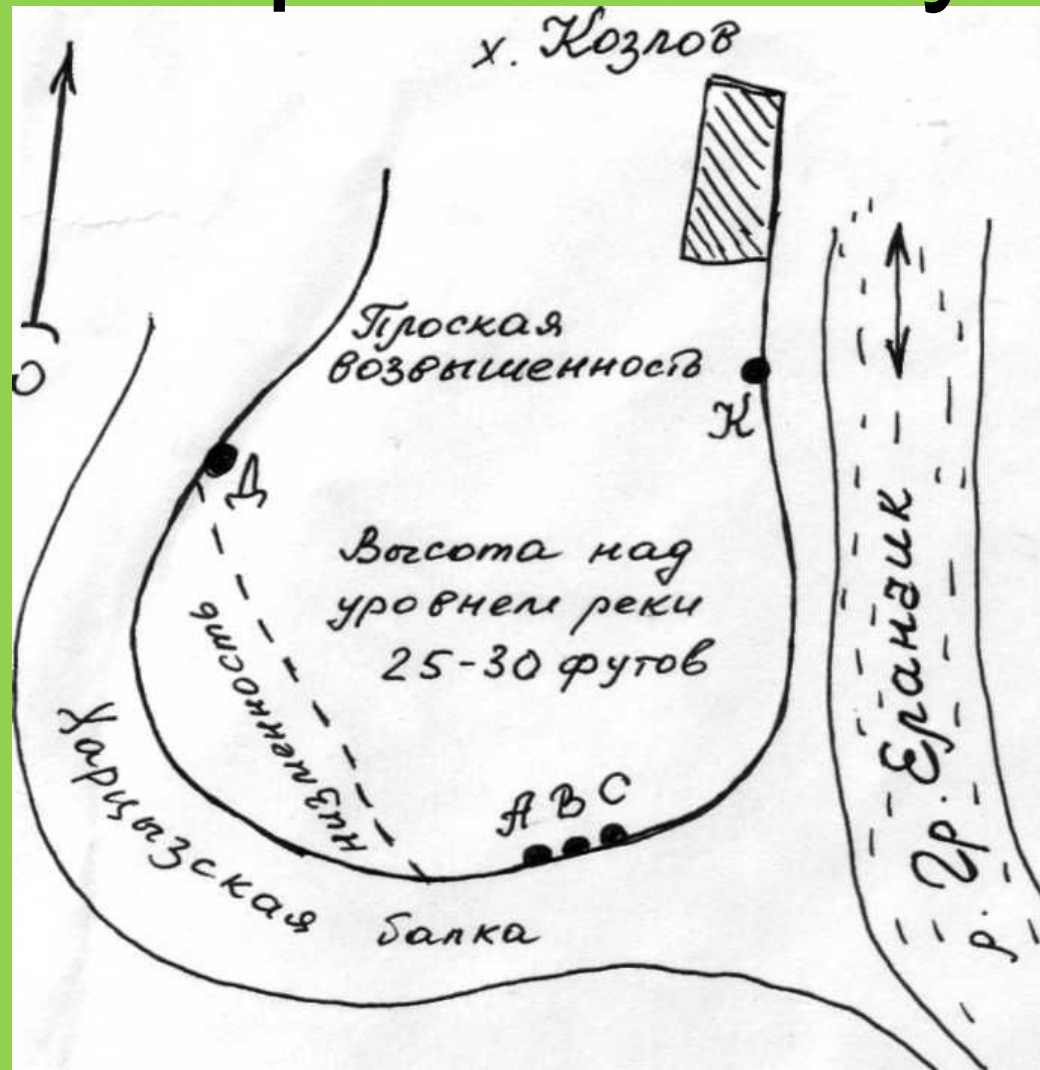 х. Козлов
Ю
Плоская
возвышенность
К
Д
Высота над
уровнем реки
25-30 футов
низменность
А В С
Харцызская балка
р. Гр. Еланчик